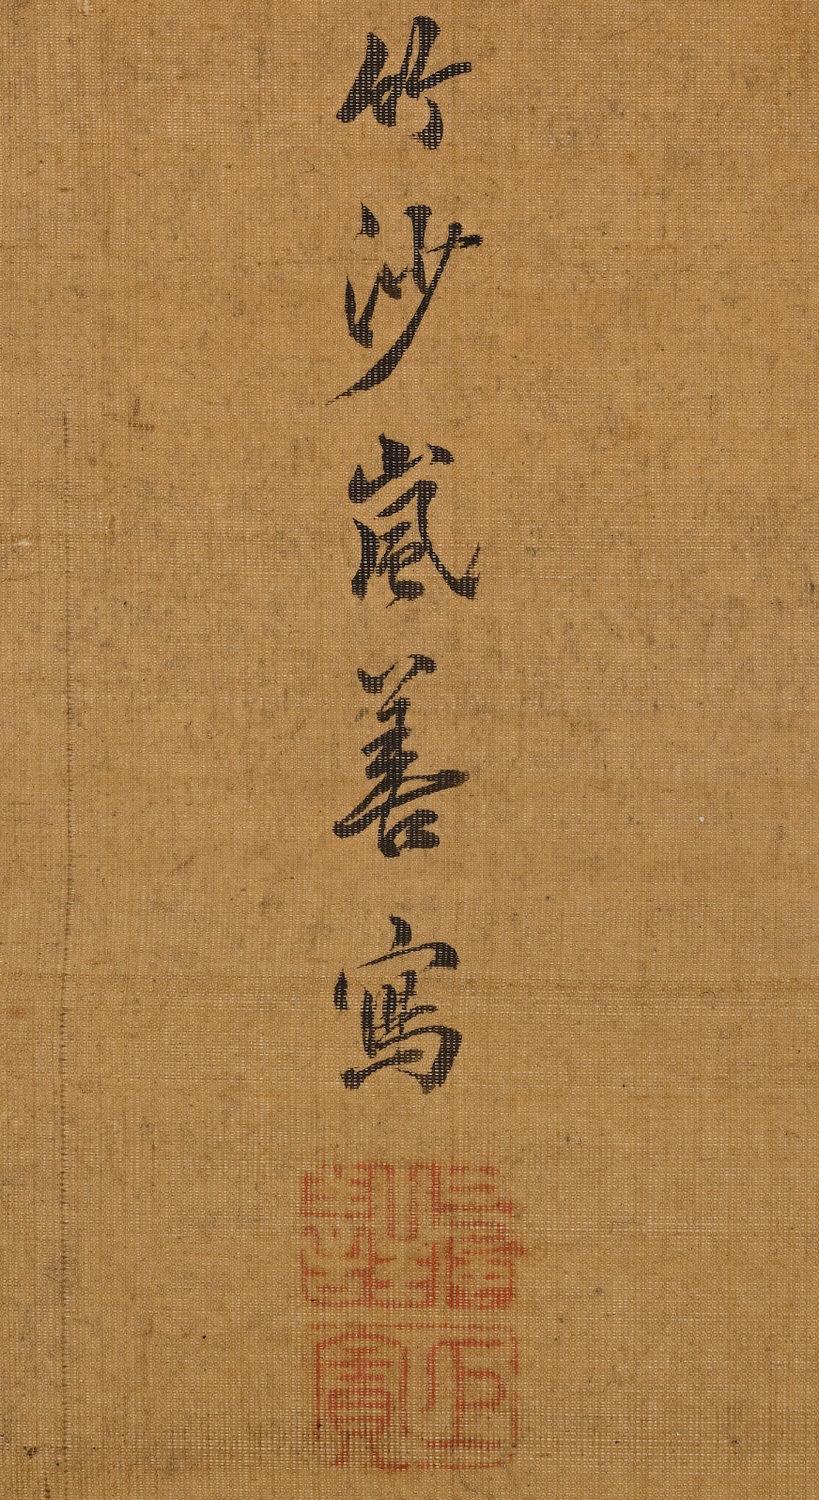 竹沙嵐善寫